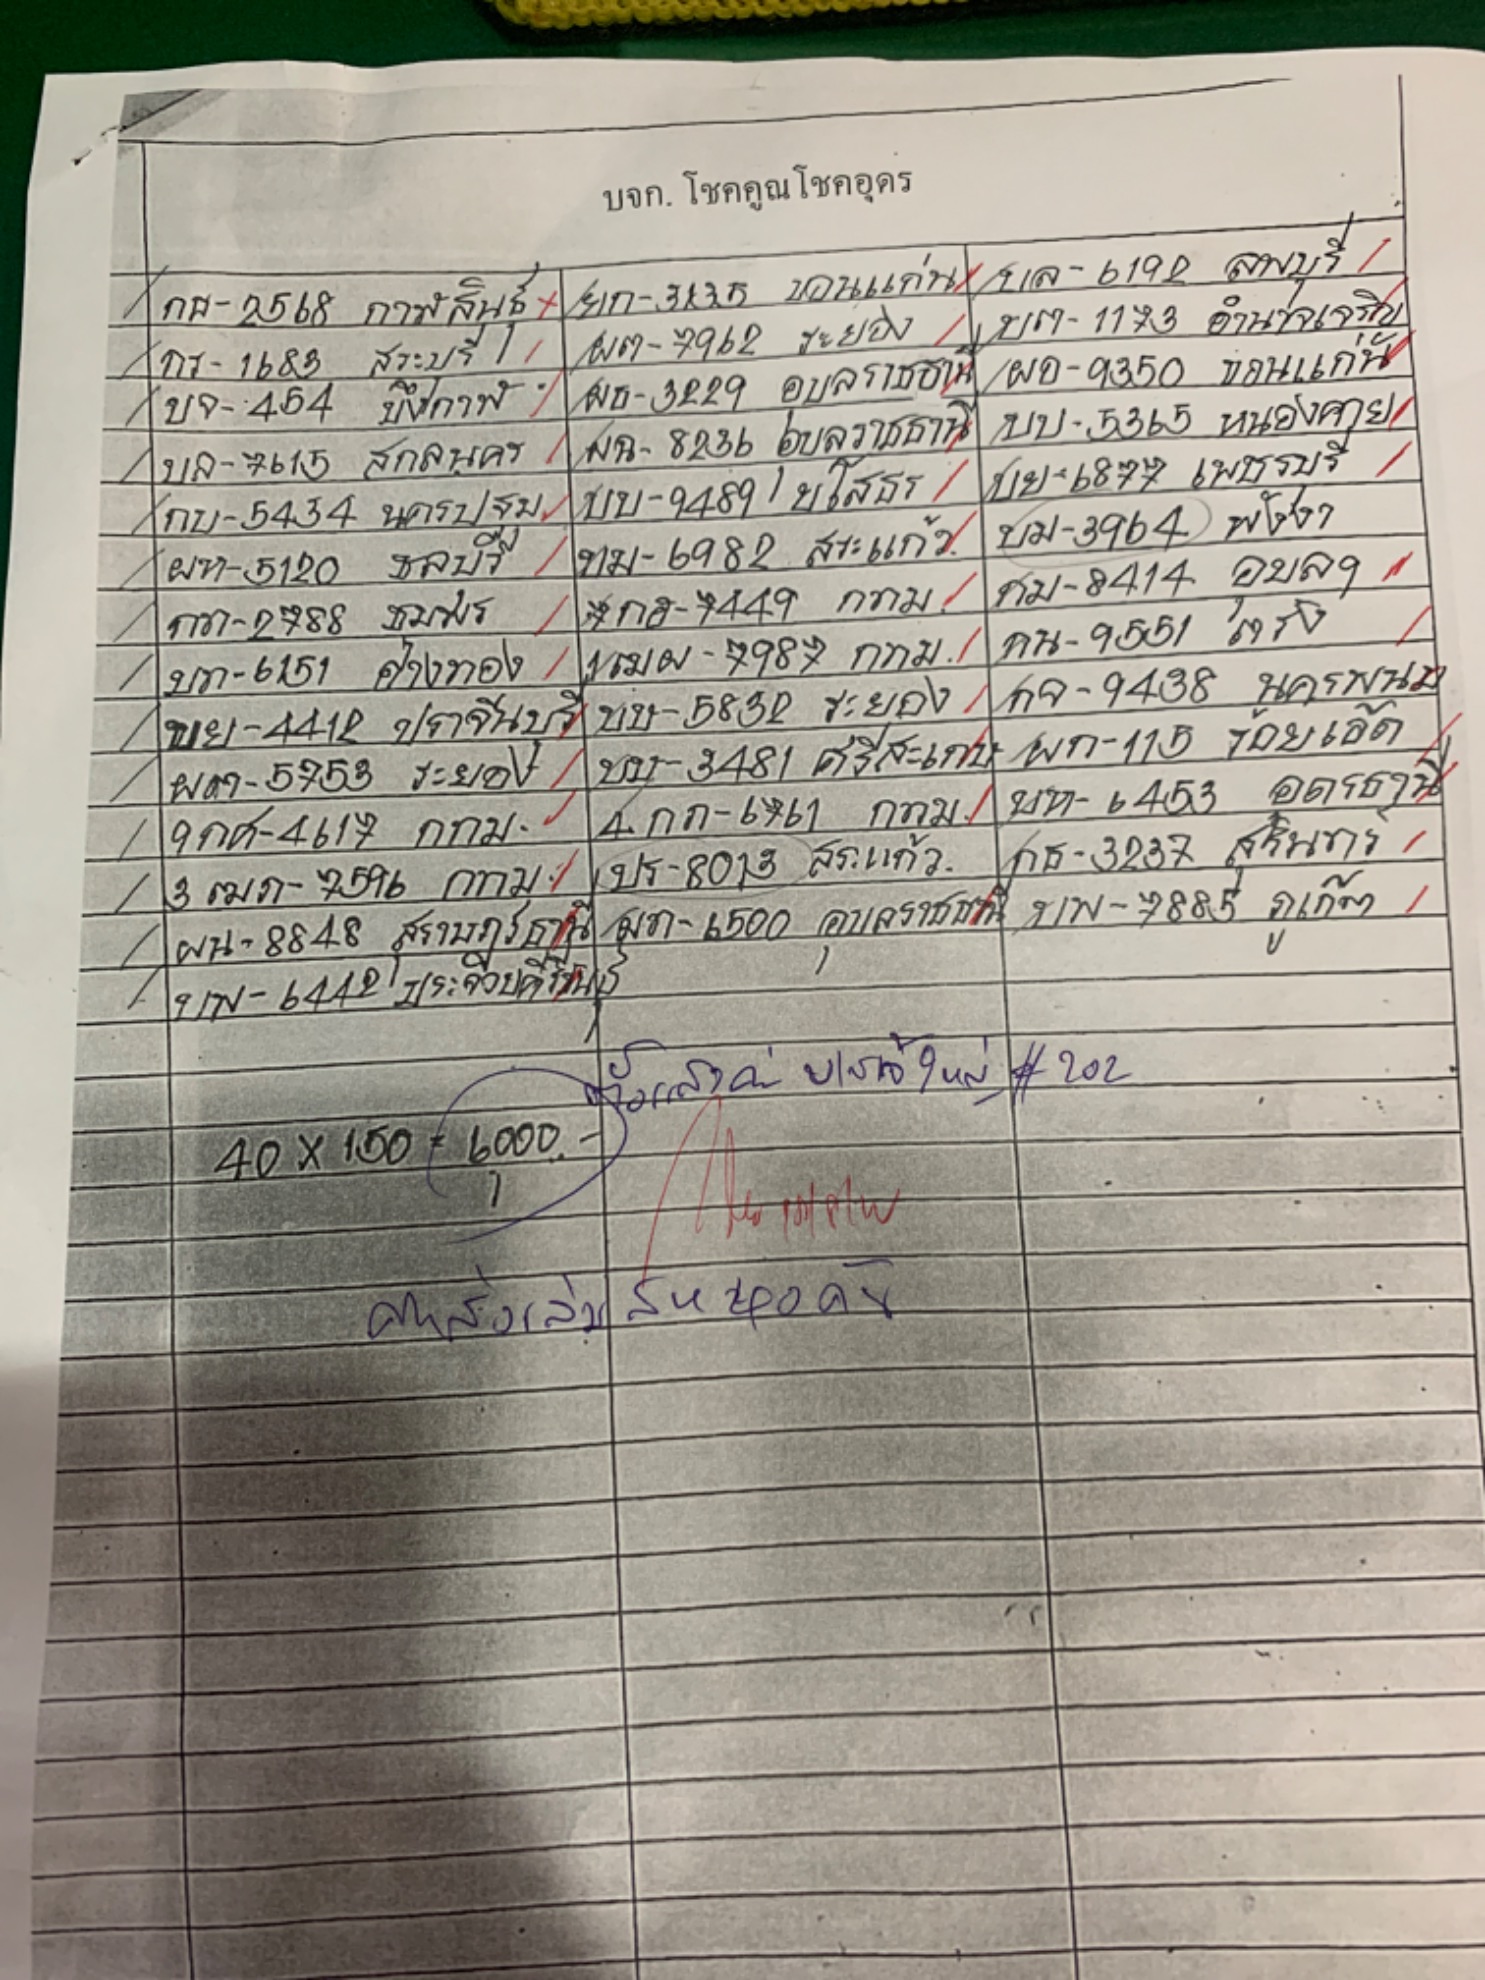 บจก. โชคคูณโชคอุดร
กส-2568 กาฬสินธุ์
กร-1683 สระบุรี
บจ-454 บึงกาฬ
บล-7615 สกลนคร
กบ-5434 นครปฐม
ผท-5120 ชลบุรี
กท-2788 ชุมพร
บท-6151 อ่างทอง
บย-4412 ปราจีนบุรี
ผต-5753 ระยอง
9 กศ-4617 กทม.
3 ฒก-7596 กทม.
ผน-8848 สุราษฎร์ธานี
บพ-6442 ประจวบคีรีขันธ์
ยก-3235 ขอนแก่น
ผต-7962 ระยอง
ผธ-3229 อุบลราชธานี
ผฉ-8236 อุบลราชธานี
บบ-9489 ยโสธร
บม-6982 สระแก้ว
7 กอ-7449 กทม.
1 ฒผ-7987 กทม.
บบ-5832 ระยอง
บบ-3481 ศรีสะเกษ
4 กก-6761 กทม.
ปร-8013 สระแก้ว.
ผก-6500 อุบลราชธานี
บล-6192 ลพบุรี
บต-1173 อำนาจเจริญ
ผอ-9350 ขอนแก่น
บบ-5365 หนองคาย
บย-6877 เพชรบุรี
บม-3964 พังงา
กม-8414 อุบลฯ
กน-9551 ตรัง
กจ-9438 นครพนม
ผก-115 ร้อยเอ็ด
บห-6453 อุดรธานี
กธ-3237 สุรินทร์
บพ-7885 ภูเก็ต
#202
40 X 150 = 6000.-